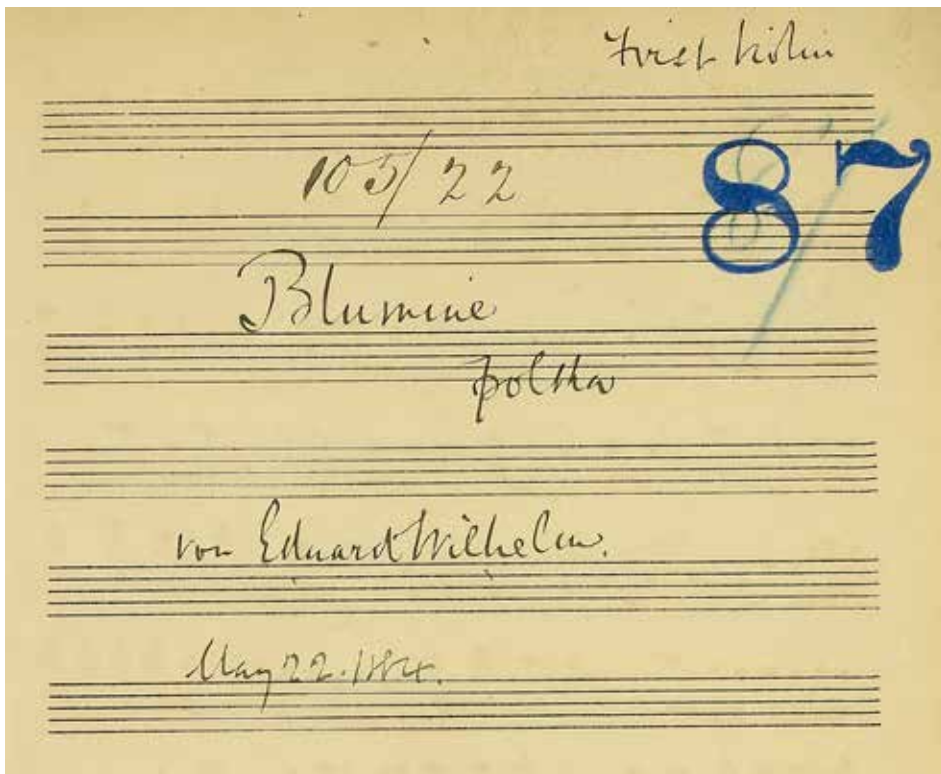 First Violin
87
105/22
Blumine
Polka
von Eduard Wilhelm.
May 22. 1884.